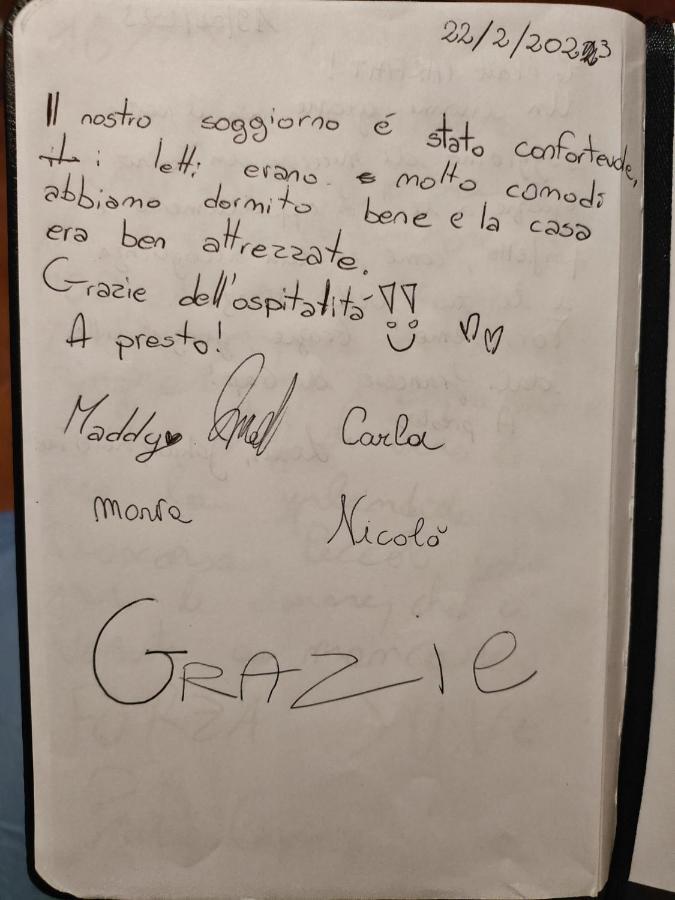 22/2/2023
Il nostro soggiorno é stato confortevole,
i letti erano molto comodi
abbiamo dormito bene e la casa
era ben attrezzate.
Grazie dell'ospitalitá !!
A presto!
Maddy Carla
Nicolò
GRAZIE